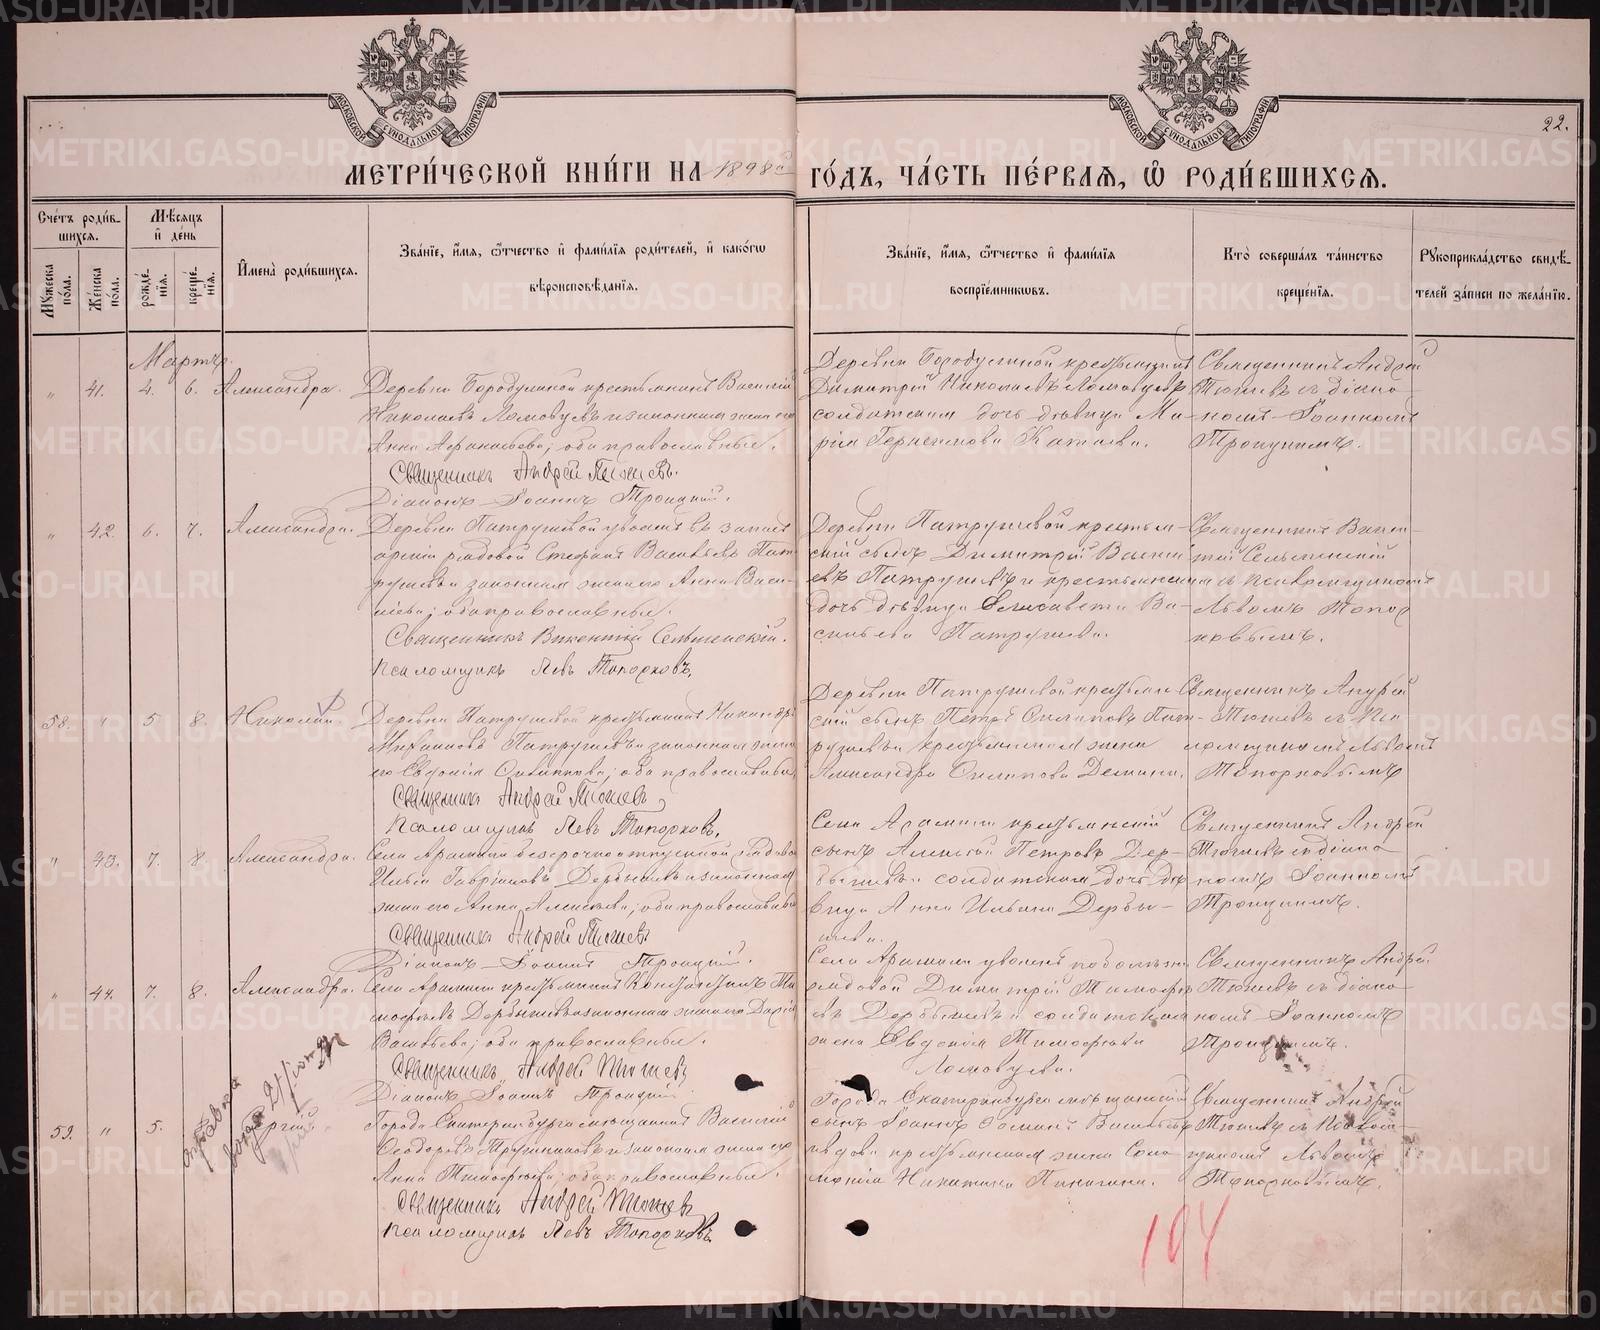 22.
МЕТРИ́ЧЕСКОЙ КНИ́ГИ НА 1898й ГО́ДЪ, ЧА́СТЬ ПЕ́РВАЯ, Ѽ РОДИ́ВШИХСЯ.
Сче́тъ роди́вшихся.
Мꙋ́жеска по́ла.
Же́нска по́ла.
Мѣ́сяцъ и҆ де́нь
рожде́нїя.
креще́нїя.
И҆мена̀ роди́вшихся.
Зва́нїе, и҆́мя, ѻ҆́тчество и҆ фами́лїя роди́телей, и҆ како́гѡ
вѣроисповѣ́данїя.
Зва́нїе, и҆́мя, ѻ҆́тчество и҆ фами́лїя
воспрїе́мникѡвъ.
Кто̀ соверша́лъ та́инство
креще́нїя.
Рꙋкоприкла́дство свидѣ́телей за́писи по жела́нїю.
Мартъ.
" 41. 4. 6. Александра.
Деревни Бородулиной крестьянинъ Василій
Николаевъ Ломовцевъ и законная жена его
Анна Афанасьева; оба православные.
Священникъ Андрей
Діаконъ Іоаннъ Троицкий.
Деревни Бородулиной крестьянинъ
Димитрій Николаевъ Ломовцевъ
солдатская дочь дѣвица Ма-
рія Герасимова Катаева.
Священникъ Андрей
съ діако-
номъ Іоанномъ
Троицкимъ.
" 42. 6. 7. Александра.
Деревни Патрушевой уволен. въ запасъ
арміи рядовой Стефанъ Васильевъ Пат-
рушевъ и законная жена его Анна Васи-
льева; оба православные.
Священникъ Викентій Сельменскій.
Псаломщикъ Левъ Топорковъ.
Деревни Патрушевой крестьян-
скій сынъ Димитрій Васильевъ
Патрушевъ и крестьянская
дочь дѣвица Елисавета Ва-
сильева Патрушева.
Священникъ Викен-
тій Сельменскій
съ псаломщикомъ
Львомъ Топор-
ковымъ.
58. " 5 8. Николай.
Деревни Патрушевой крестьянинъ Никандръ
Михаиловъ Патрушевъ и законная жена
его Евдокія Филиппова; оба православные
Священникъ Андрей
Псаломщикъ Левъ Топорковъ.
Деревни Патрушевой крестьян-
скій сынъ Петръ Филиповъ Пат-
рушевъ и крестьянская жена
Александра Филипова Демина.
Священникъ Андрей
съ пса-
ломщикомъ Львомъ
Топорковымъ
" 43. 7. 8. Александра.
Села Арамили безсрочно отпускной рядовой
Илья Гавріиловъ Дербышевъ и законная
жена его Анна Алексѣева; оба православные
Священникъ Андрей
Діаконъ Іоаннъ Троицкий.
Села Арамили крестьянскій
сынъ Алексѣй Петровъ Дер-
бышевъ и солдатская дочь дѣ-
вица Анна Ильина Дербы-
шева.
Священникъ Андрей
съ діако-
номъ Іоанномъ
Троицкимъ.
" 44. 7. 8. Александра.
Села Арамили крестьянинъ Константинъ Ти-
мофеевъ Дербышевъ и законная жена его Дарія
Васильева; оба православные.
Священникъ Андрей
Діаконъ Іоаннъ Троицкій
Села Арамили уволен. по болѣзни
рядовой Димитрій Тимофее-
въ Дербышевъ и солдатская
жена Евдокія Тимофеева
Ломовцева.
Священникъ Андрей
съ діако-
номъ Іоанномъ
Троицкимъ.
59. " 5.
Города Екатеринбурга мещанинъ Василій
Ѳеодоровъ Трутниковъ и законная жена его
Анна Тимофеева; оба православные.
Священникъ Андрей
Псаломщикъ Левъ Топорковъ.
Города Екатеринбурга мещанскій
сынъ Іоаннъ
крестьянская жена Соло-
монія Никитина
Священникъ Андрей
съ псалом-
щикомъ Львомъ
Топорковымъ.
104